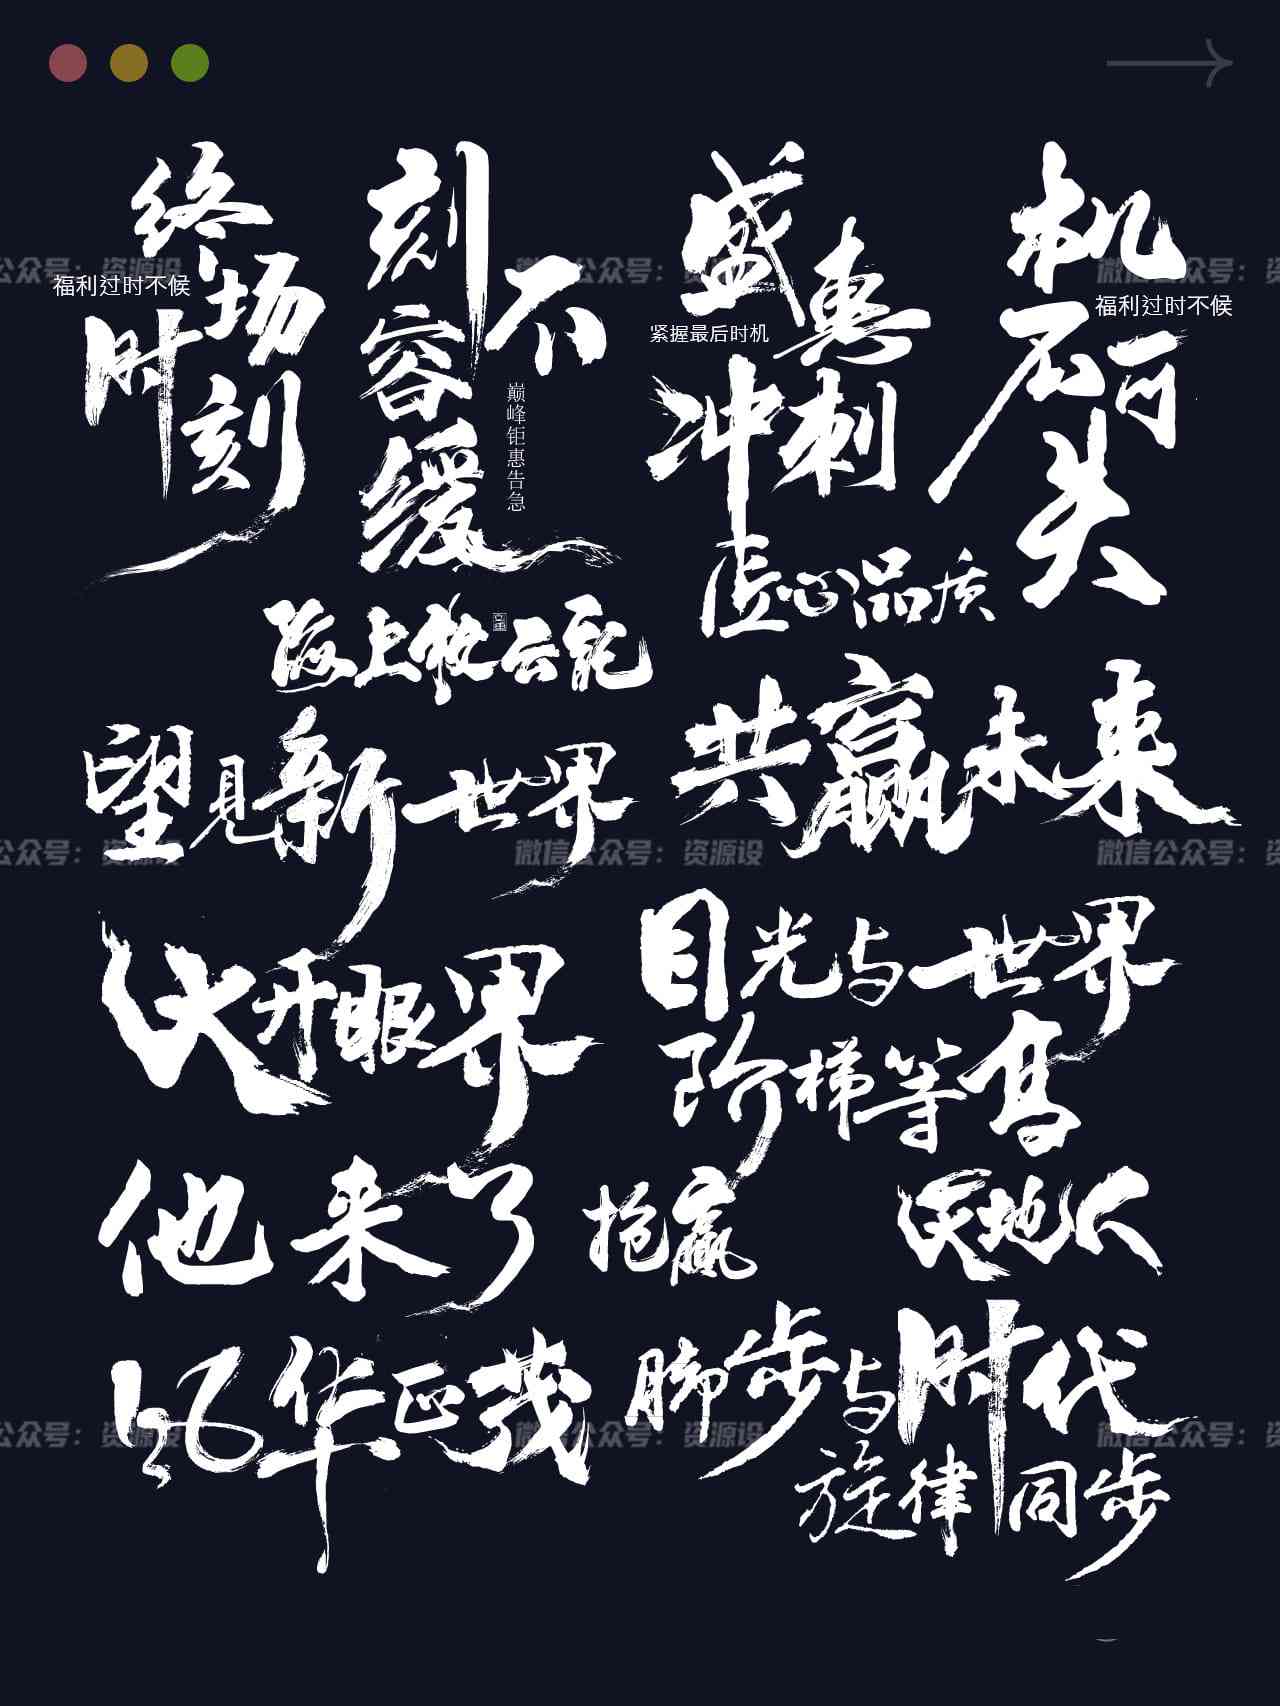 终场时刻
福利过时不候
刻不容缓
巅峰钜惠告急
盛惠冲刺
紧握最后时机
机不可失
福利过时不候
匠心品质
陌上牧云
望见新世界
共赢未来
大开眼界
目光与世界
阶梯等高
他来了
抢赢
天地人
风华正茂
脚步与时代
旋律同步
微信公众号：资源设